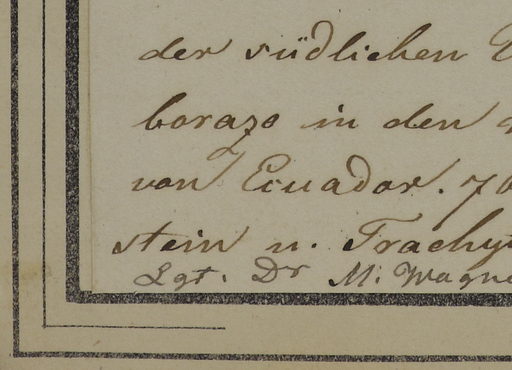 der südlichen
borazo in den
von Ecuador. 7
stein u. Trachy
Lgt. Dr M. Wagne